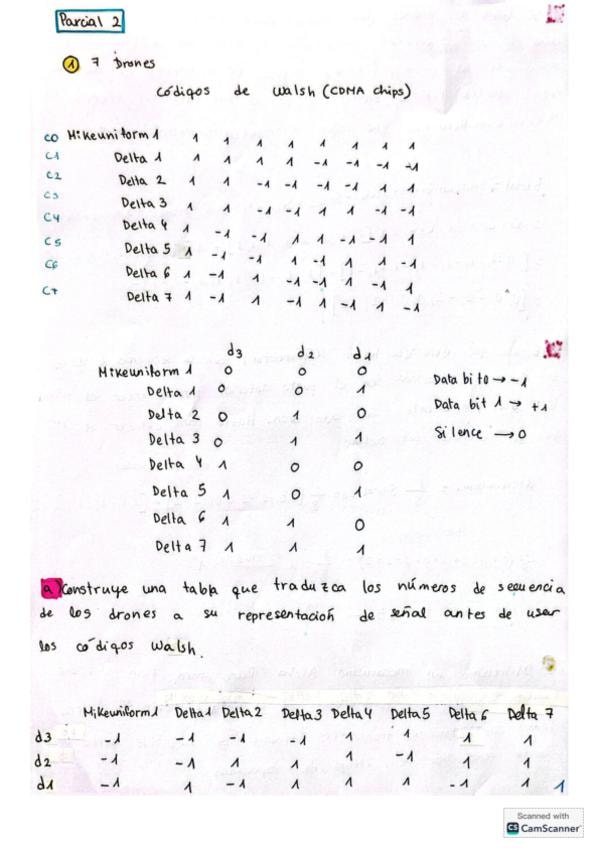 Parcial 2
1 7 Drones
Códigos de Walsh (CDMA chips)
C0 Mikeuniform 1 1 1 1 1 1 1 1 1
C1 Delta 1 1 1 1 1 -1 -1 -1 -1
C2 Delta 2 1 1 -1 -1 -1 -1 1 1
C3 Delta 3 1 1 -1 -1 1 1 -1 -1
C4 Delta 4 1 -1 -1 1 1 -1 -1 1
C5 Delta 5 1 -1 -1 1 -1 1 1 -1
C6 Delta 6 1 -1 1 -1 -1 1 -1 1
C7 Delta 7 1 -1 1 -1 1 -1 1 -1
d3 d2 d1
Mikeuniform 1 0 0 0
Delta 1 0 0 1
Delta 2 0 1 0
Delta 3 0 1 1
Delta 4 1 0 0
Delta 5 1 0 1
Delta 6 1 1 0
Delta 7 1 1 1
Data bit 0 → -1
Data bit 1 → +1
Silence → 0
a) Construye una tabla que traduzca los números de secuencia
de los drones a su representación de señal antes de usar
los códigos Walsh.
Mikeuniform 1 Delta 1 Delta 2 Delta 3 Delta 4 Delta 5 Delta 6 Delta 7
d3 -1 -1 -1 -1 1 1 1 1
d2 -1 -1 1 1 1 -1 1 1
d1 -1 1 -1 1 1 1 -1 1
1
Scanned with
CS CamScanner